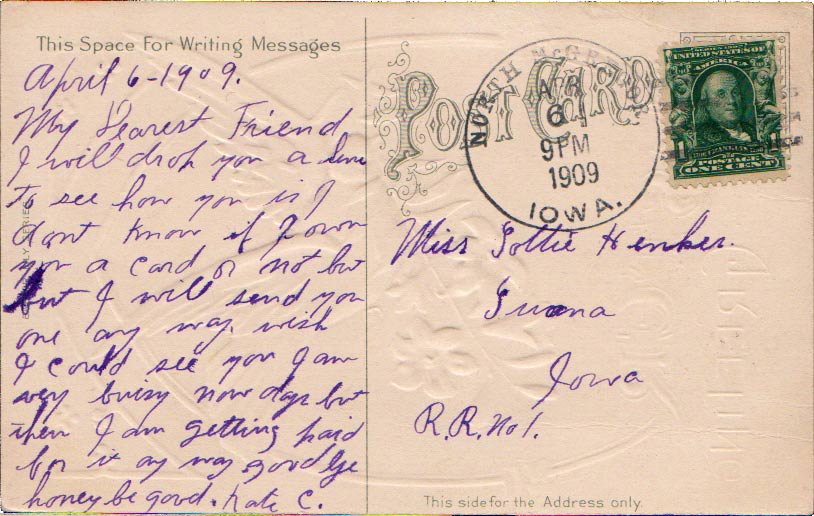 This Space For Writing Messages
April 6-1909.
My Dearest Friend
I will drop you a line
to see how you is I
dont know if I own
you a card or not but
but I will send you
one any way. wish
I could see you I am
very buisy now days but
then I am getting paid
for it ay way good bye
honey be good. Kate C.
POST CARD
NORTH McGREGOR
APR
6
9 PM
1909
IOWA.
UNITED STATES OF
AMERICA
1 FRANKLIN 1
POSTAGE
ONE CENT
Miss Lottie Henker.
Luana
Iowa
R.R. No 1.
This side for the Address only.